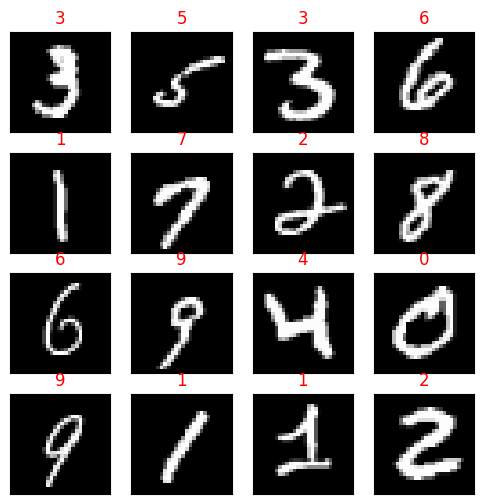 3 5 3 6
3 5 3 6
1 7 2 8
1 7 2 8
6 9 4 0
6 9 4 0
9 1 1 2
9 1 1 2